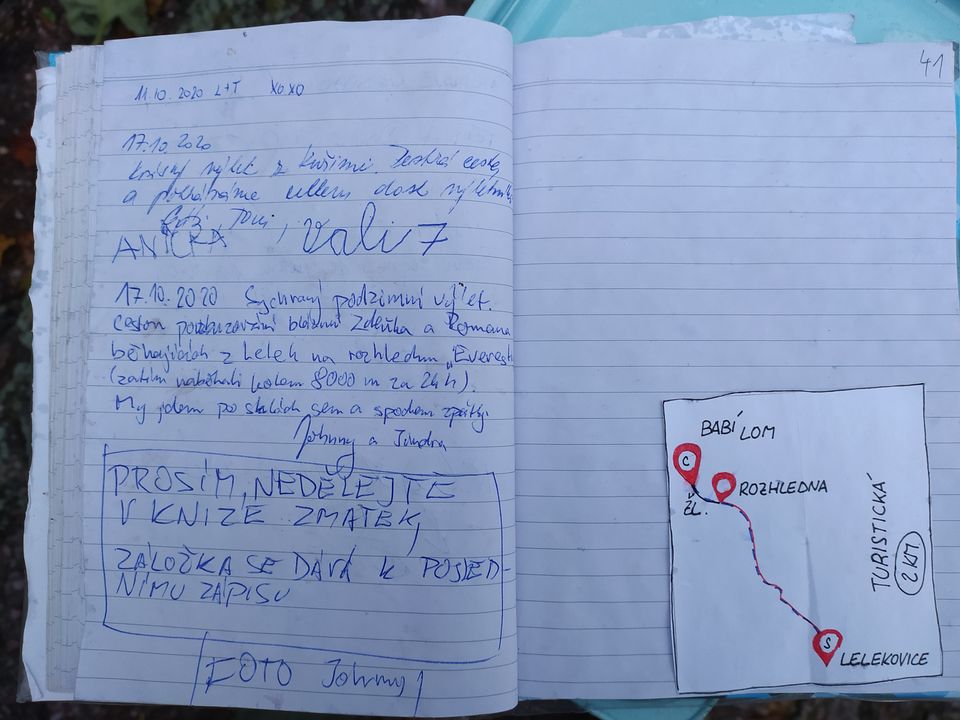 11.10.2020 L+T XOXO
17.10.2020
výlet z Kuřimi. cesta,
a pokácíme celkem dost
Toni,
ANIČKA Vali 7
17.10.2020 Sychravý podzimní výlet.
Cestou povzbuzování bláznů Zdeňka a Romana
běhajících z Lelek na rozhlednu „Everest
(zatím naběhali kolem 8000 m za 24 h).
My jdem po skalách sem a spodem zpátky.
Johnny a Jindra
PROSÍM, NEDĚLEJTE
V KNIZE ZMATEK,
ZÁLOŽKA SE DÁVÁ K POSLED-
NÍMU ZÁPISU
FOTO Johnny
41
BABÍ LOM
C
ŽL.
ROZHLEDNA
TURISTICKÁ
2 KM
S
LELEKOVICE